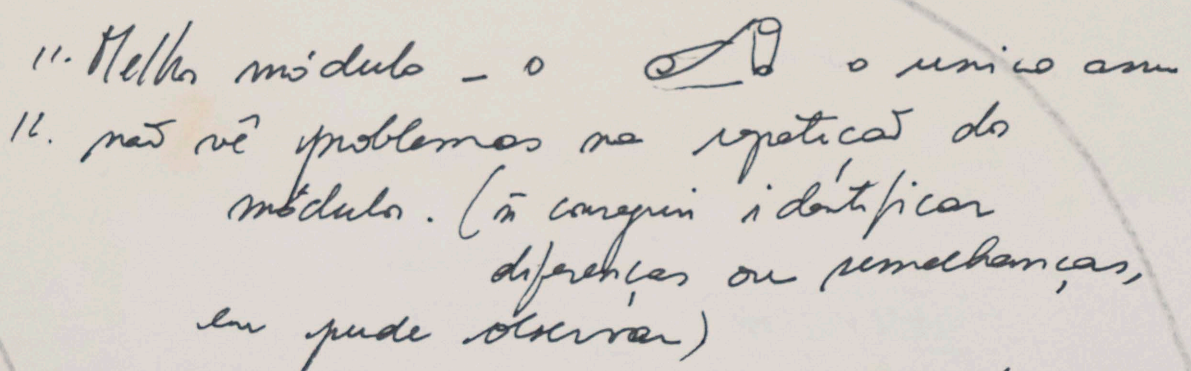 11. Melhor módulo - o o unico assu
12. não vê problemas na repetição dos
módulos. (ñ consegui identificar
diferenças ou semelhanças,
eu pude observar)